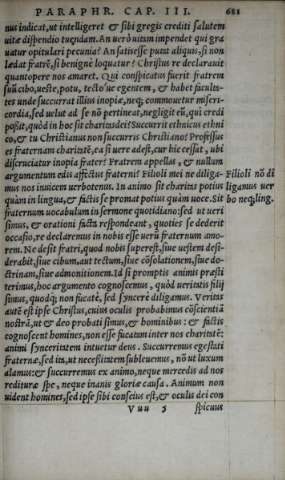 PARAPHR. CAP. III. 681
nus indicat, ut intelligeret & sibi gregis crediti salutem
uitæ dispendio tuendam. An uerò uitam impendet qui gra
uatur opitulari pecunia? An satis esse putat aliquis, si non
lædat fratrẽ, si benignè loquatur? Christus re declarauit
quantopere nos amaret. Qui conspicatus fuerit fratrem
suũ cibo, ueste, potu, tecto'ue egentem, & habet faculta-
tes unde succurrat illius inopiæ, neq; commouetur miseri-
cordia, sed uelut ad se nõ pertineat, negligit eũ, qui credi
posit, quòd in hoc sit charitas dei? Succurrit ethnicus ethni
co, & tu Christianus non succurris Christiano? Professus
es fraternam charitatẽ, ea si uere adest, cur hic cessat, ubi
discruciatur inopia frater? Fratrem appellas, & nullum
argumentum edis affectus fraterni? Filioli mei ne diliga-
mus nos inuicem uerbotenus. In animo sit charitas potius
quàm in lingua, & factis se promat potius quàm uoce. Sit
fraternum uocabulum in sermone quotidiano: sed ut ueri
simus, & orationi facta respondeant, quoties se dederit
occasio, re declaremus in nobis esse uerũ fraternum amo-
rem. Ne desit fratri, quod nobis superest, siue uestem desi-
derabit, siue cibum, aut tectum, siue cõsolationem, siue do-
ctrinam, siue admonitionem. Id si promptis animis præsti
terimus, hoc argumento cognoscemus, quòd ueritatis filij
simus, quodq; non fucatè, sed synceré diligamus. Veritas
autẽ est ipse Christus, cuius oculis probabimus cõscientiã
nostrã, ut & deo probati simus, & hominibus: & factis
cognoscent homines, non esse fucatam inter nos charitatẽ:
animi synceritatem intuetur deus. Succurremus egestati
fraternæ, sed ita, ut necessitatem subleuemus, nõ ut luxum
alamus: & succurremus ex animo, neque mercedis ad nos
redituræ spe, neque inanis gloriæ causa. Animum non
uident homines, sed ipse sibi conscius est, & oculis dei con
Vuu 5 spicuus
Filioli nõ di
ligamus uer
bo neq; ling.